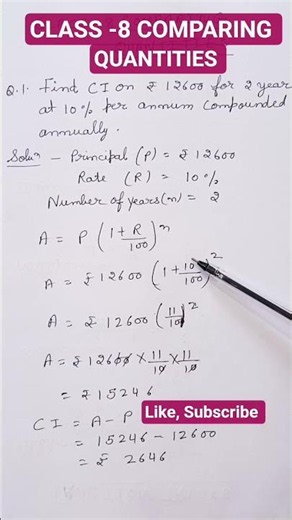 CLASS -8 COMPARING
QUANTITIES
Q.1. Find CI on ₹ 12600 for 2 year
at 10% per annum compounded
annually.
Solun - Principal (P) = ₹ 12600
Rate (R) = 10%
Number of years (n) = 2
A = P (1+R/100)^n
A = ₹ 12600 (1+10/100)^2
A = ₹ 12600 (11/10)^2
A = ₹ 12600 × 11/10 × 11/10
= ₹ 15246
CI = A - P
Like, Subscribe
= 15246 - 12600
= ₹ 2646